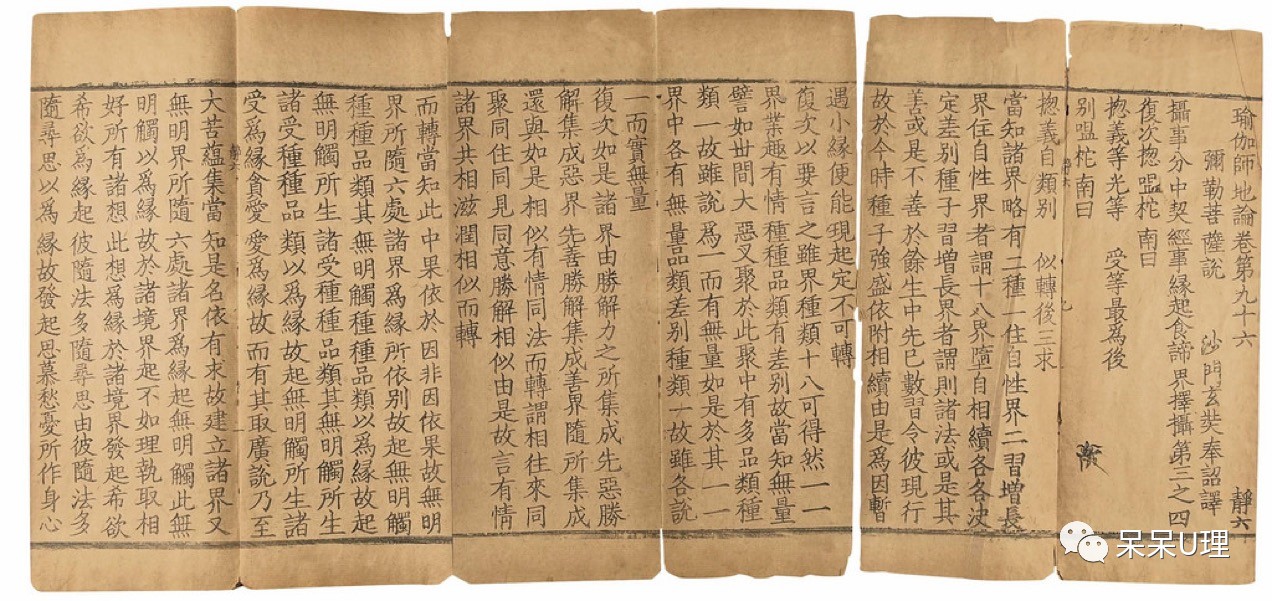 瑜伽師地論卷第九十六 靜六
彌勒菩薩說 沙門玄奘奉詔譯
攝事分中契經事緣起食諦界擇攝第三之四
復次揔嗢柁南曰
揔義等光等 受等最爲後
別嗢柁南曰
揔義自類別 似轉後三求
當知諸界略有二種一住自性界二習增長
界住自性界者謂十八界墮自相續各各決
定差別種子習增長界者謂則諸法或是其
善或是不善於餘生中先已數習令彼現行
故於今時種子強盛依附相續由是爲因暫
遇小緣便能現起定不可轉
復次以要言之雖界種類十八可得然一一
界業趣有情種種品類有差別故當知無量
譬如世間大惡叉聚於此聚中有多品類種
類一故雖說爲一而有無量如是於其一一
界中各有無量品類差別種類一故雖各說
一而實無量
復次如是諸界由勝解力之所集成先惡勝
解集成惡界先善勝解集成善界隨所集成
還與如是相似有情同法而轉謂相往來同
聚同住同見同意勝解相似由是故言有情
諸界共相滋潤相似而轉
而轉當知此中果依於因非因依果故無明
界所隨六處諸界爲緣所依別故起無明觸
種種品類其無明觸種種品類以爲緣故起
無明觸所生諸受種種品類其無明觸所生
諸受種種品類以爲緣故起無明觸所生諸
受爲緣貪愛愛爲緣故而有其取廣說乃至
大苦蘊集當知是名依有求故建立諸界又
無明界所隨六處諸界爲緣起無明觸此無
明觸以爲緣故於諸境界起不如理執取相
好所有諸想此想爲緣於諸境界發起希欲
希欲爲緣起彼隨法多隨尋思由彼隨法多
隨尋思以爲緣故發起思慕愁憂所作身心
呆呆U理